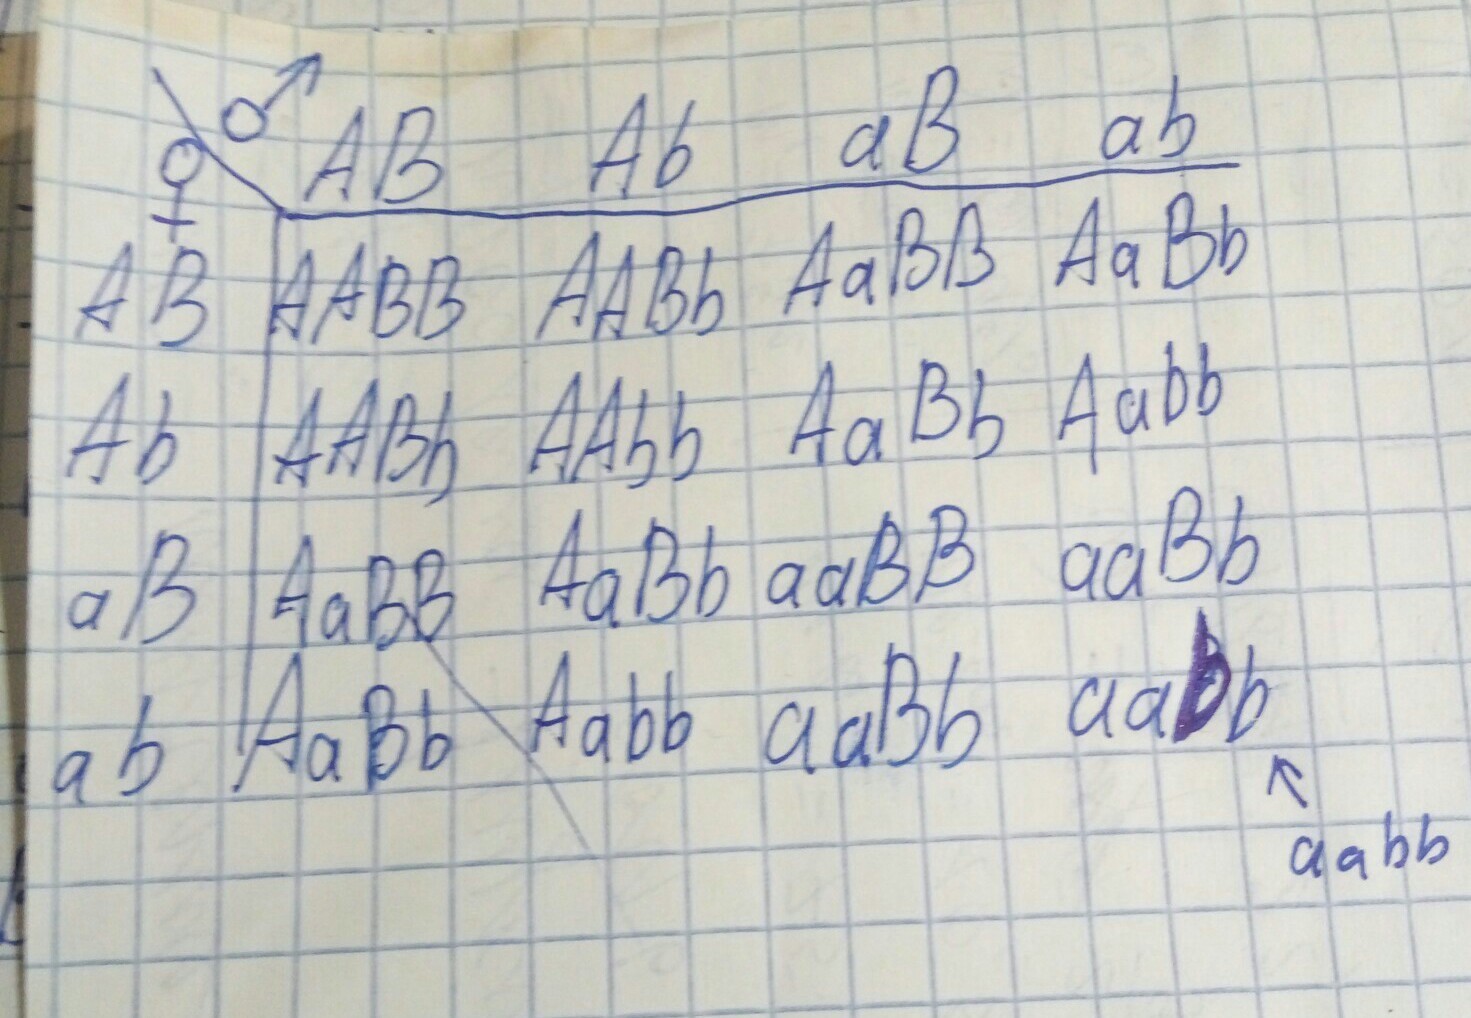 ♀ ♂ AB Ab aB ab
AB AABB AABb AaBB AaBb
Ab AABb AAbb AaBb Aabb
aB AaBB AaBb aaBB aaBb
ab AaBb Aabb aaBb aabb
aabb